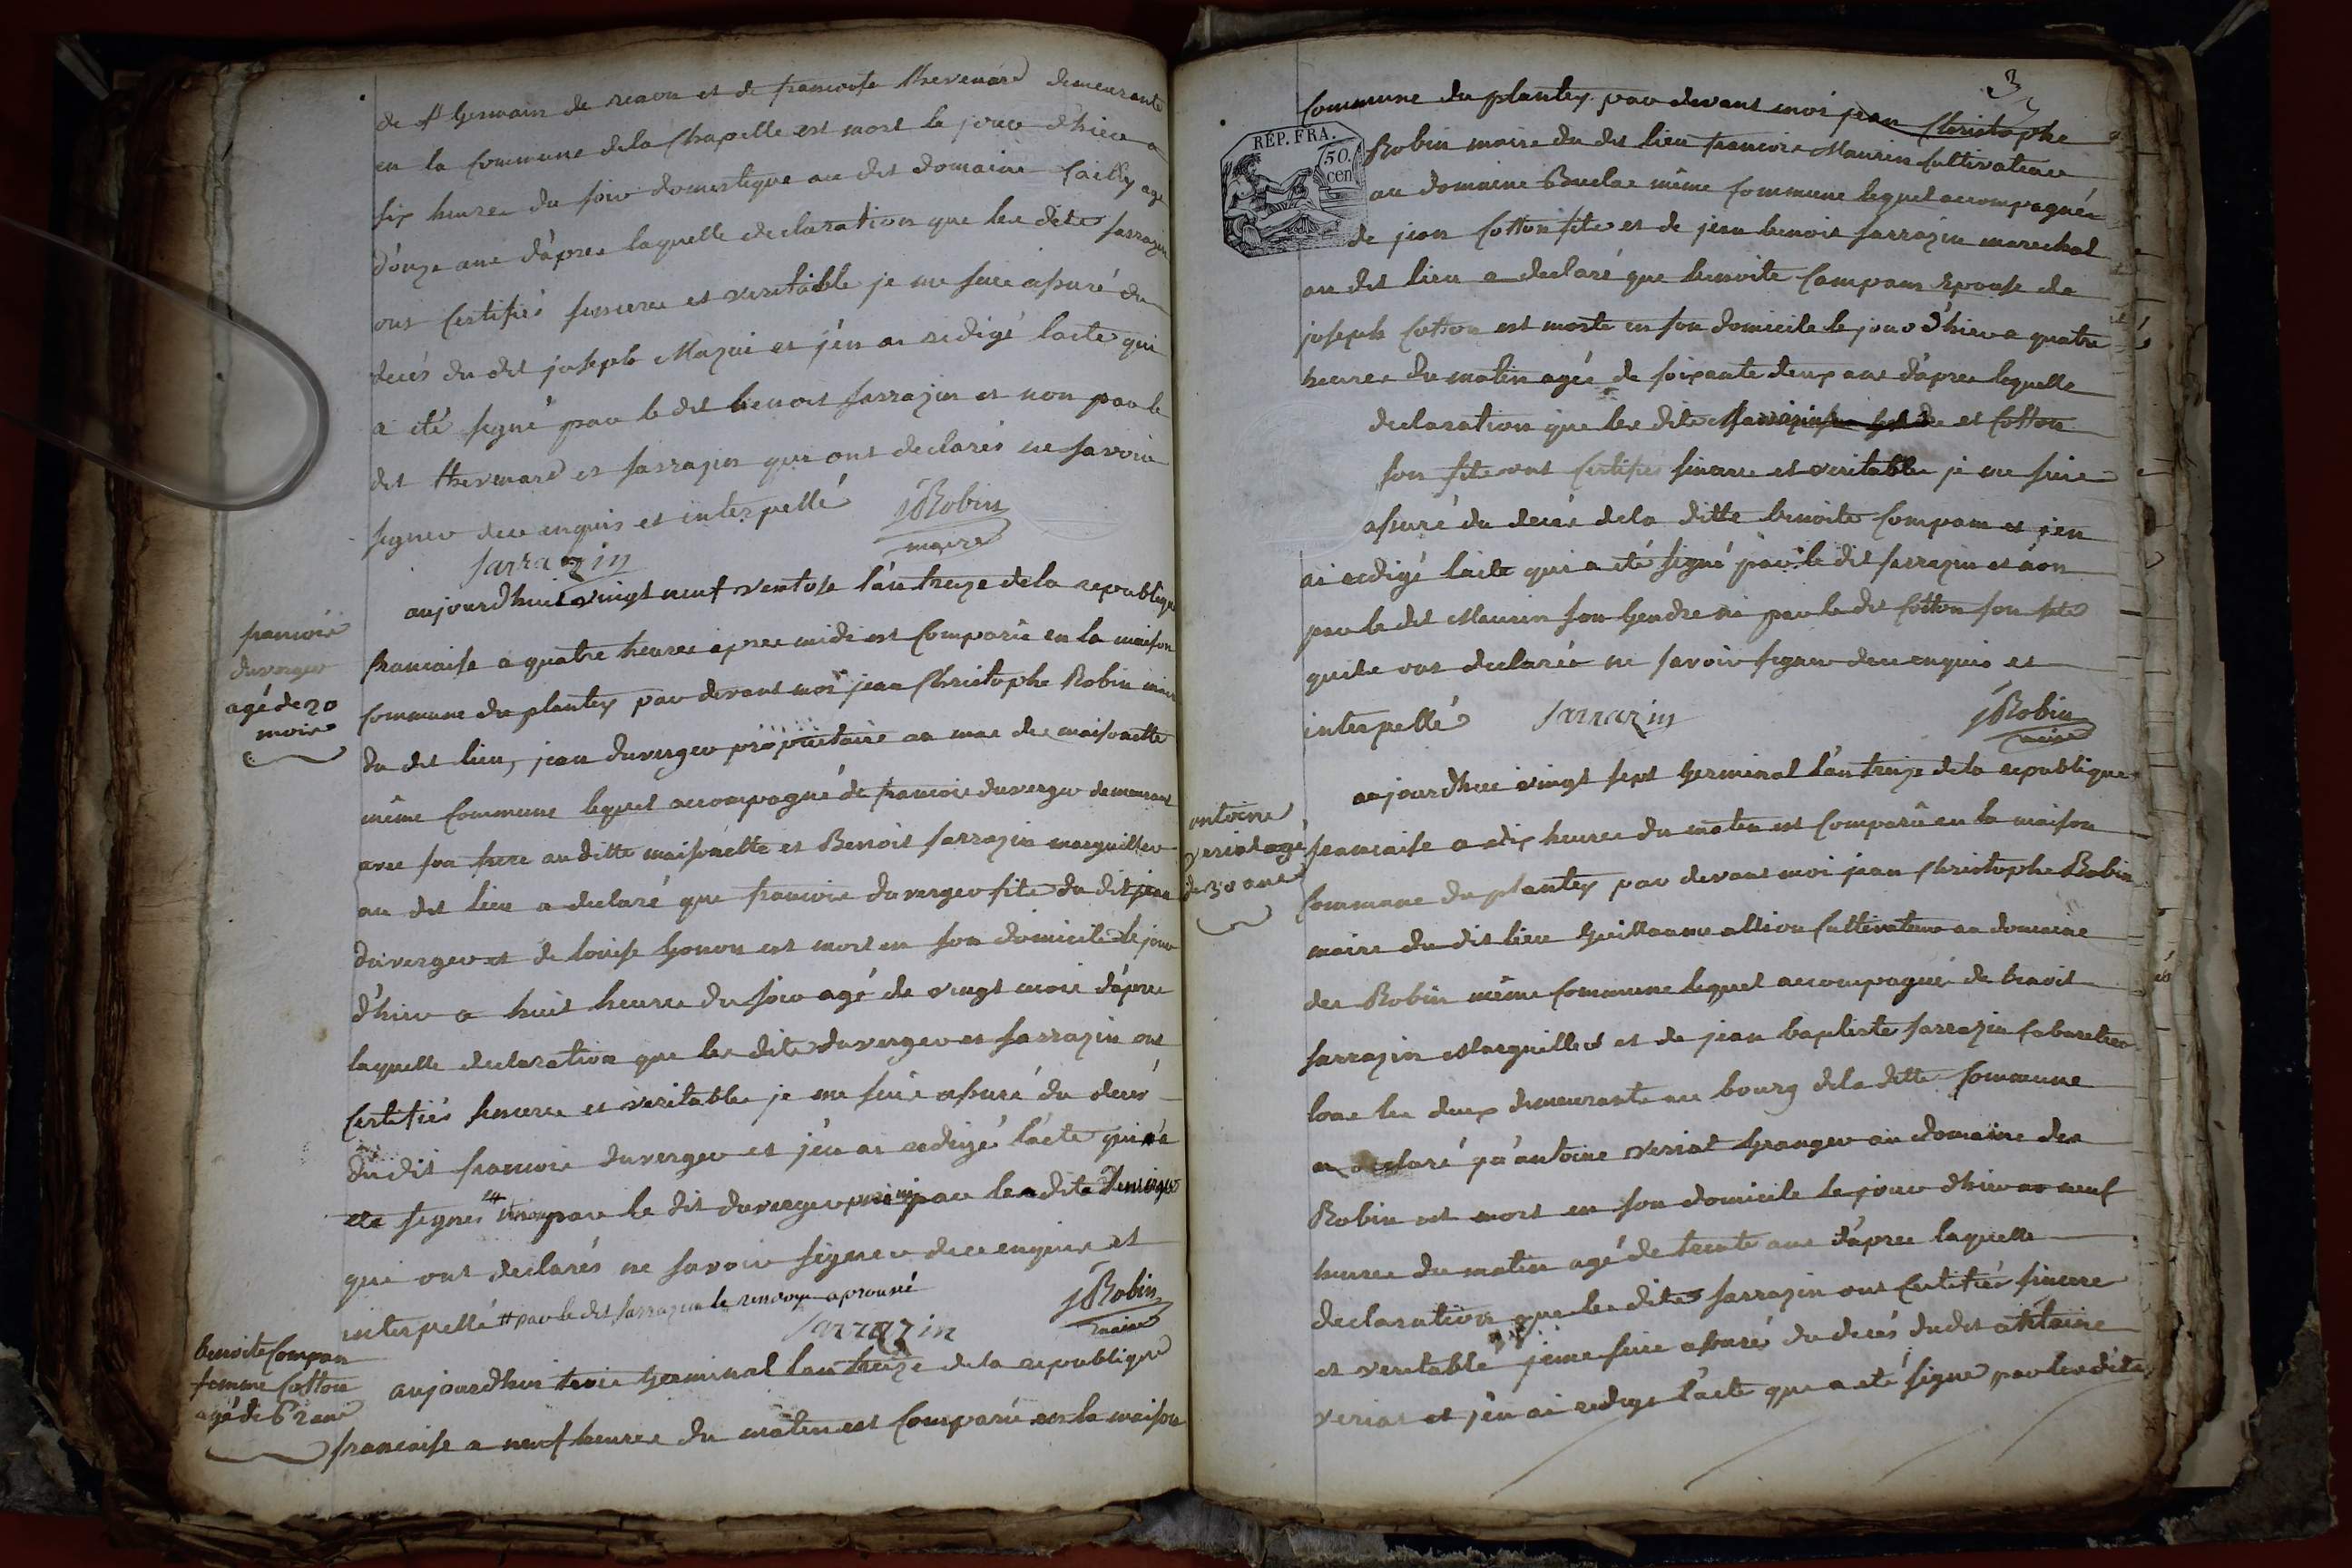 de st germain de renon et de francoise thevenard demeurants
en la commune dela chapelle est mort le jour d'hier a
six heures du soir domestique au dit domaine cailly agé
d'onze ans d'apres laquelle declaration que les dits sarrazin
ont certifiés sincere et veritable je me suis assuré du
decés du dit joseph Mazui et j'en ai redigé lacte qui
a été signé par le dit benoit sarrazin et non par le
dit thevenard et sarrazin qui ont declarés ne savoir
signer dece enquis et interpellé jRobin
maire
sarrazin
francois
duverger
agé de 20
mois
aujourdhui vingt neuf ventose l'an treize dela republique
francaise a quatre heures apres midi est comparu en la maison
commune du plantey par devant moi jean Christophe Robin maire
du dit lieu, jean duverger propriétaire au mas des maisonette
même commune lequel accompagné de francois duverger demeurant
avec son frere au ditte maisonette et Benoit sarrazin marguillier
au dit lieu a declaré que francois duverger fils du dit jean
duverger et de louise gonon est mort en son domicile le jour
d'hier a huit heures du soir agé de vingt mois d'apres
laquelle declaration que les dits duverger et sarrazin ont
certifiés sincere et veritable je me suis assuré du decés
dudit francois duverger et j'en ai redigé l'acte qui a
été signé # non par le dit duverger ni par les dits Duverger
qui ont declarés ne savoir signer dece enquis et
interpellé # par le dit sarrazin le renvoye aprouvé jRobin
maire
sarrazin
benoite Compan
femme Cotton
agé de 62 ans
aujourdhui trois germinal lan treize dela republique
francaise a neuf heures du matin est comparu en la maison
3
commune du plantey par devant moi jean Christophe
REP. FRA.
50.
cen
Robin maire du dit lieu francois Maurin cultivateur
au domaine Buclae même commune lequel accompagnée
de jean Cotton fils et de jean benoit sarrazin marechal
au dit lieu a declaré que benoite Compan Epouse de
joseph Cotton est morte en son domicile le jour d'hier a quatre
heures du matin agée de soixante deux ans d'apres lequelle
declaration que les dits Maurin son gendre et Cotton
son fils ont certifiés sincere et veritable je me suis
assuré du decés dela ditte benoite Compam et j'en
ai redigé lacte qui a été signé par le dit sarrazin et non
par le dit Maurin son gendre ni par le dit Cotton son fils
quils ont declarés ne savoir signer dece enquis et
interpellé sarrazin jRobin
maire
antoine
veriat agé
de 30 ans
aujourdhui vingt sept germinal l'an treize dela republique
francaise a dix heures du matin est comparu en la maison
commune du plantey par devant moi jean Christophe Robin
maire du dit lieu Guillaume allion cultivateur au domaine
des Robin même commune lequel accompagné de benoit
sarrazin Marguillier et de jean baptiste sarrazin cabaretier
tous les deux demeurants au bourg dela ditte commune
a declaré qu'antoine veriat granger au domaine des
Robin est mort en son domicile le jour dhier a neuf
heures du matin agé de trente ans d'apres laquelle
declaration que les dits sarrazin ont certifiés sincere
et veritable je me suis assuré du decés dudit antoine
veriat et j'en ai redigé l'acte qui a été signé par les dits